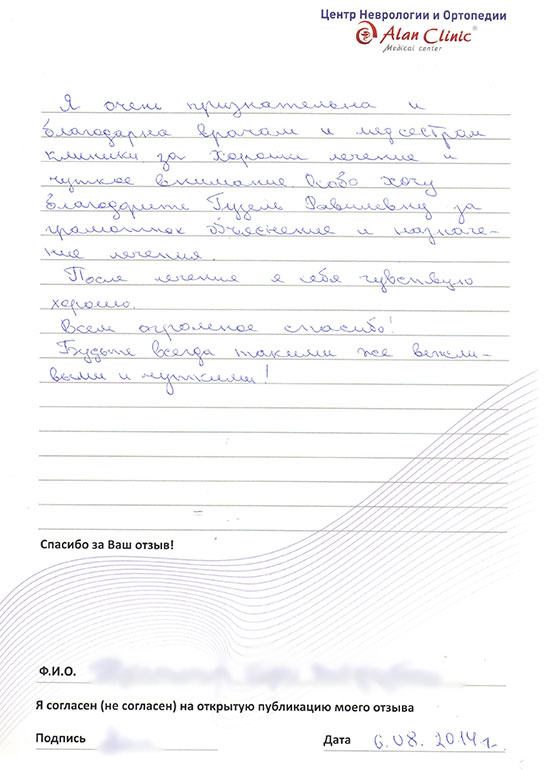 Центр Неврологии и Ортопедии
Alan Clinic®
Medical center
Я очень признательна и
благодарна врачам и медсестрам
клиники за хорошее лечение и
чуткое внимание. Особо хочу
благодарить Гузель Равилевну за
объяснение и назначе-
ние лечения.
После лечения я себя чувствую
хорошо.
Всем огромное спасибо!
Будьте всегда такими же вежли-
выми и чуткими!
Спасибо за Ваш отзыв!
Ф.И.О.
Я согласен (не согласен) на открытую публикацию моего отзыва
Подпись Дата 6.08. 2014 г.